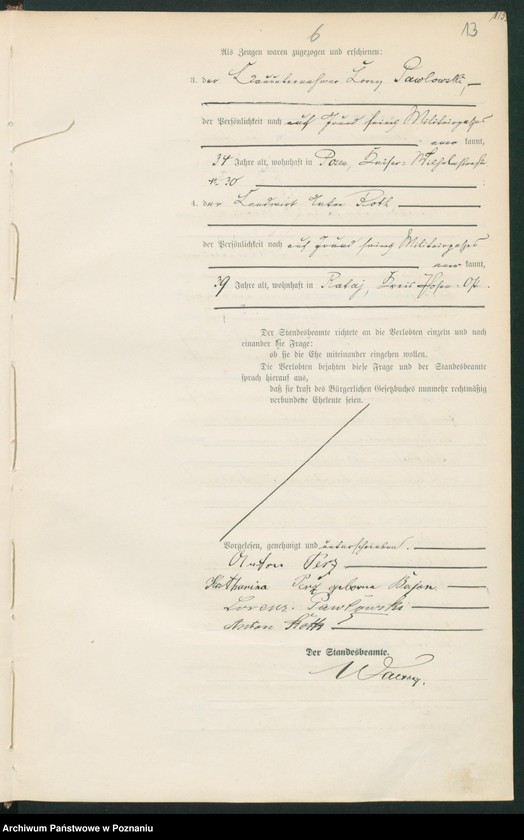 113
13
6
Als Zeugen waren zugezogen und erschienen:
3. der Bauunternehmer Lorenz Pawlowski,
der Persönlichkeit nach auf Grund seines Militairpasses
kannt,
34 Jahre alt, wohnhaft in Posen, Kaiser-Wilhelmstraße
№ 30
4. der Landwirt Anton Roth
der Persönlichkeit nach auf Grund seines Militairpasses
kannt,
39 Jahre alt, wohnhaft in Rataj, Kreis Posen-Ost.
Der Standesbeamte richtete an die Verlobten einzeln und nach
einander die Frage:
ob sie die Ehe miteinander eingehen wollen.
Die Verlobten bejahten diese Frage und der Standesbeamte
sprach hierauf aus,
daß sie kraft des Bürgerlichen Gesetzbuches nunmehr rechtmäßig
verbundene Eheleute seien.
Vorgelesen, genehmigt und unterschrieben.
Anton Perz
Katharina Perz geborne Bajon
Lorenz Pawłowski
Anton Roth
Der Standesbeamte.
Archiwum Państwowe w Poznaniu